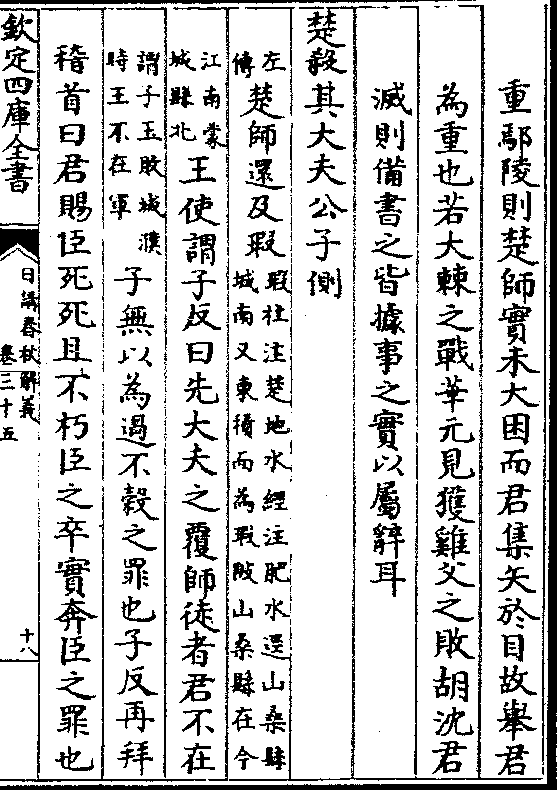 重鄢陵則楚師實未大困而君集矢於目故舉君
為重也若大棘之戰華元見獲雞父之敗胡沈君
滅則備書之皆據事之實以屬辭耳
楚殺其大夫公子側
左傳楚師還及瑕瑕杜注楚地水經注肥水逕山桑縣城南又東積而為瑕陂山桑縣在今
江南蒙城縣北王使謂子反曰先大夫之覆師徒者君不在
謂子玉敗城濮時王不在軍子無以為過不穀之罪也子反再拜
稽首曰君賜臣死死且不朽臣之卒實奔臣之罪也
欽定四庫全書
日講春秋解義
卷三十五
十八